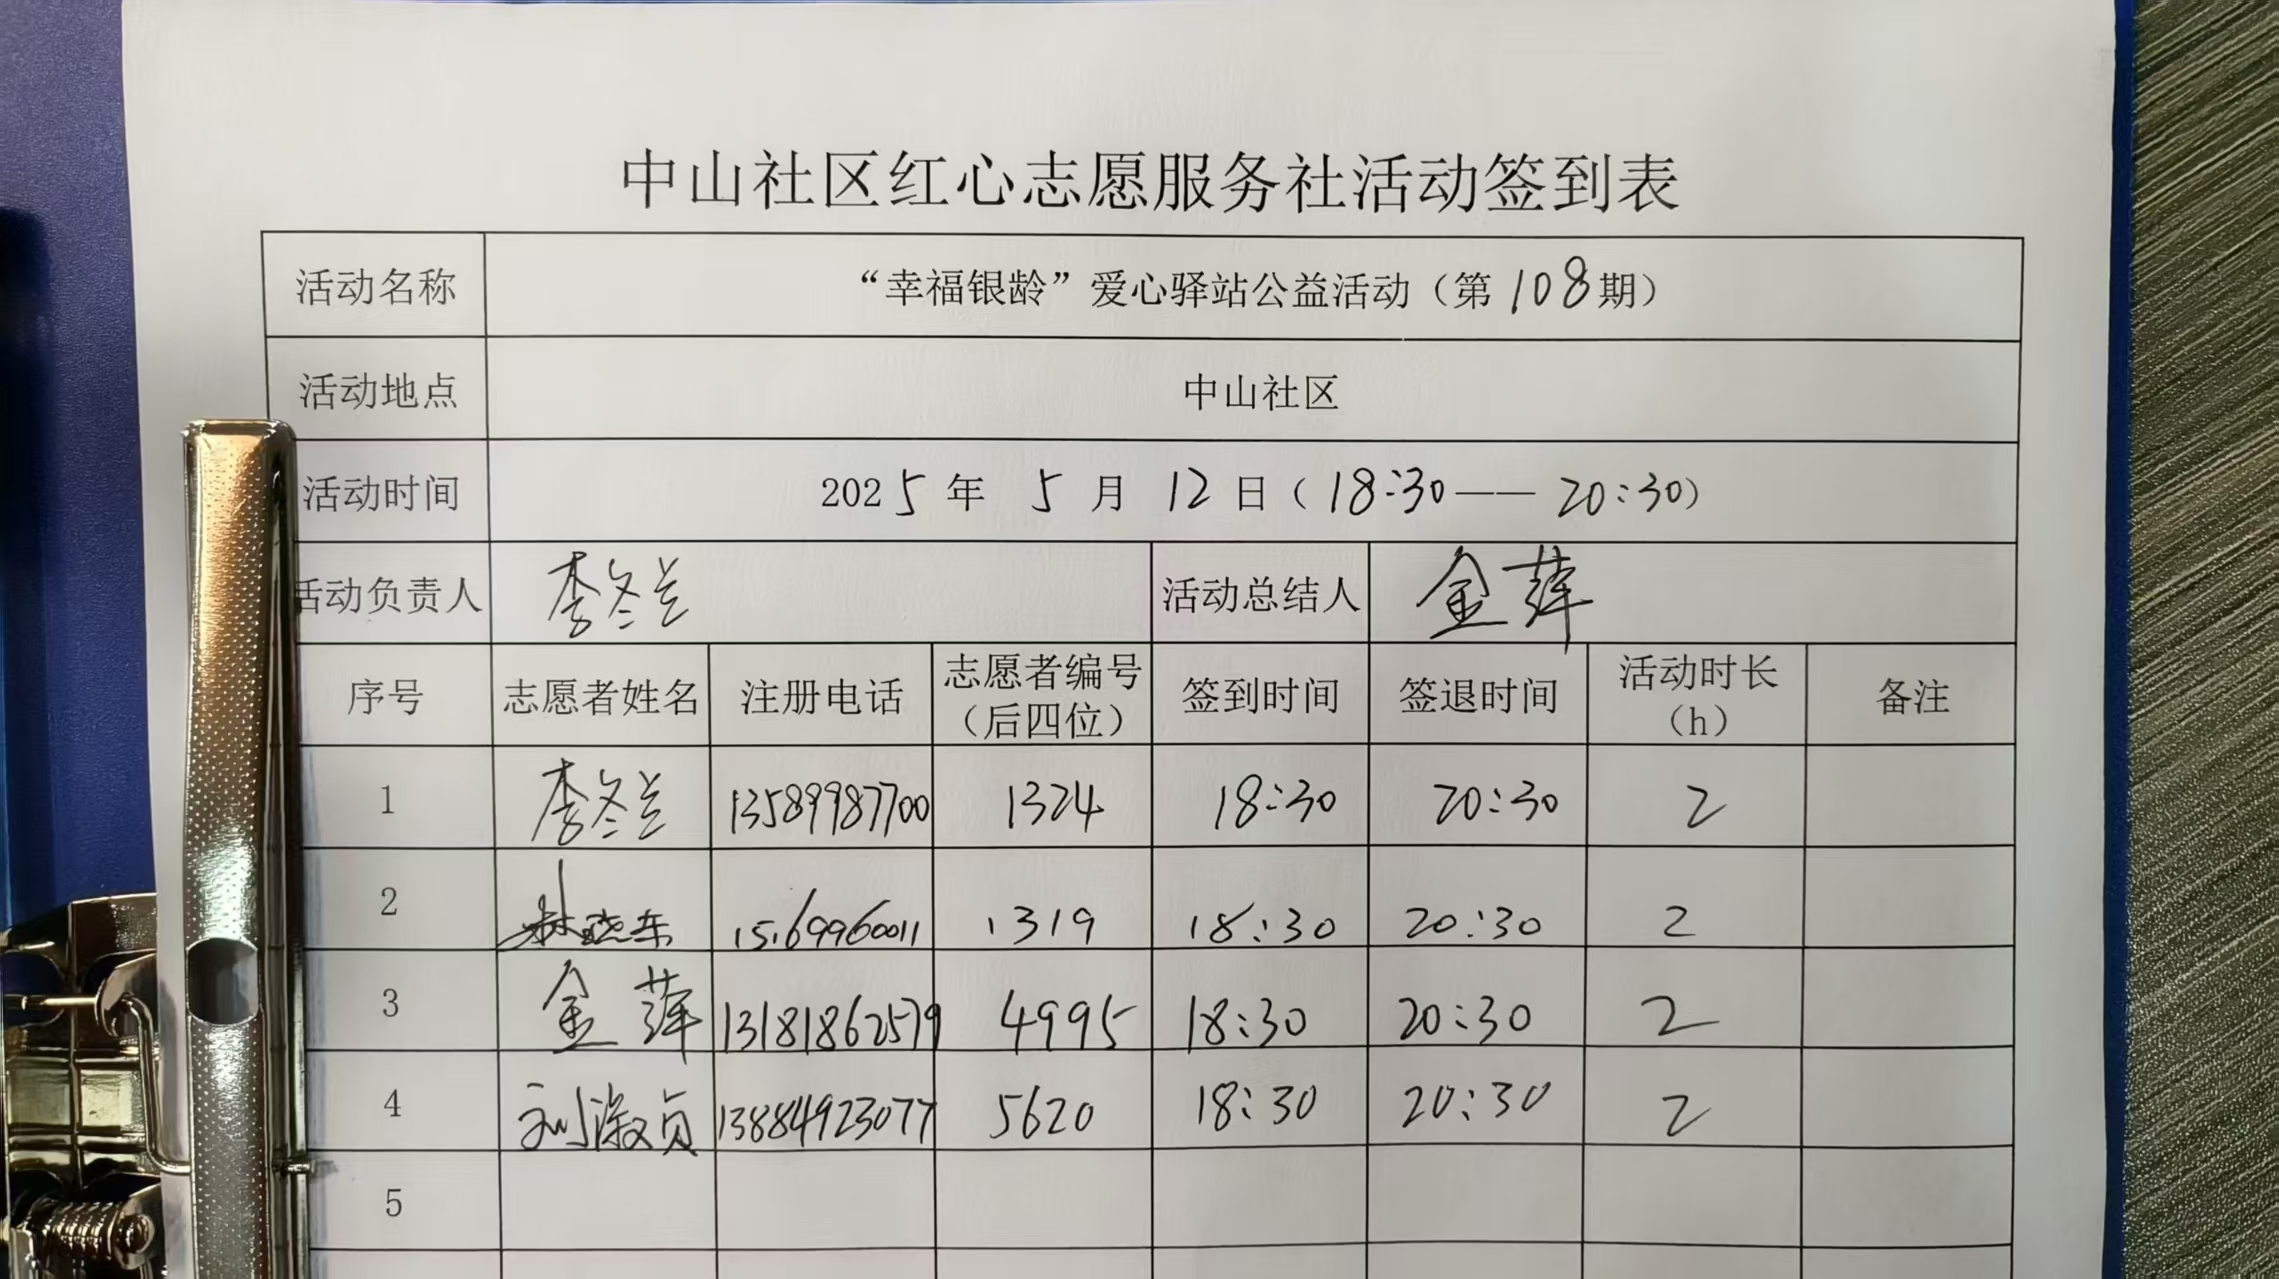 中山社区红心志愿服务社活动签到表
活动名称 “幸福银龄”爱心驿站公益活动（第108期）
活动地点 中山社区
活动时间 2025年 5月 12日（18:30——20:30）
活动负责人 李冬兰 活动总结人 金萍
序号 志愿者姓名 注册电话 志愿者编号（后四位） 签到时间 签退时间 活动时长（h） 备注
1 李冬兰 13589987700 1324 18:30 20:30 2
2 林晓东 15169960011 1319 18:30 20:30 2
3 金萍 13181862579 4995 18:30 20:30 2
4 刘淑贞 13884923077 5620 18:30 20:30 2
5